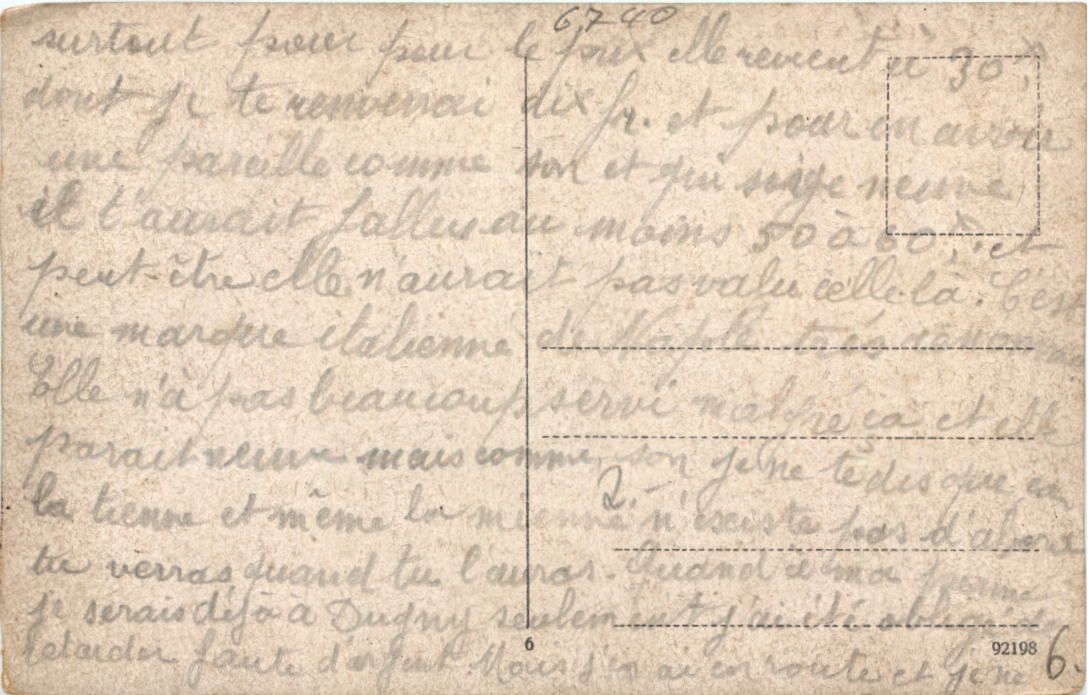 6740
surtout pour pour le prix elle revient à 30 f,
dont je te renverrai dix fr. et pour en avoir
une pareille comme son et qui soige neuve
il t'aurait fallu au moins 50 à 60 f. et
peut-être elle n'aurait pas valu celle là. C'est
une marque italienne de très renommé
Elle n'à pas beaucoup servi malgré ça et elle
parait neuve mais comme son je ne te dis que ça
la tienne et même la mienne n'existe pas d'abord
tu verras quand tu l'auras. Quand à ma
je serais déjà à Dugny seulement j'ai été obligé
retarder faute d'argent. Mais j'en ai en route et je ne
2.-
6
92198
6.